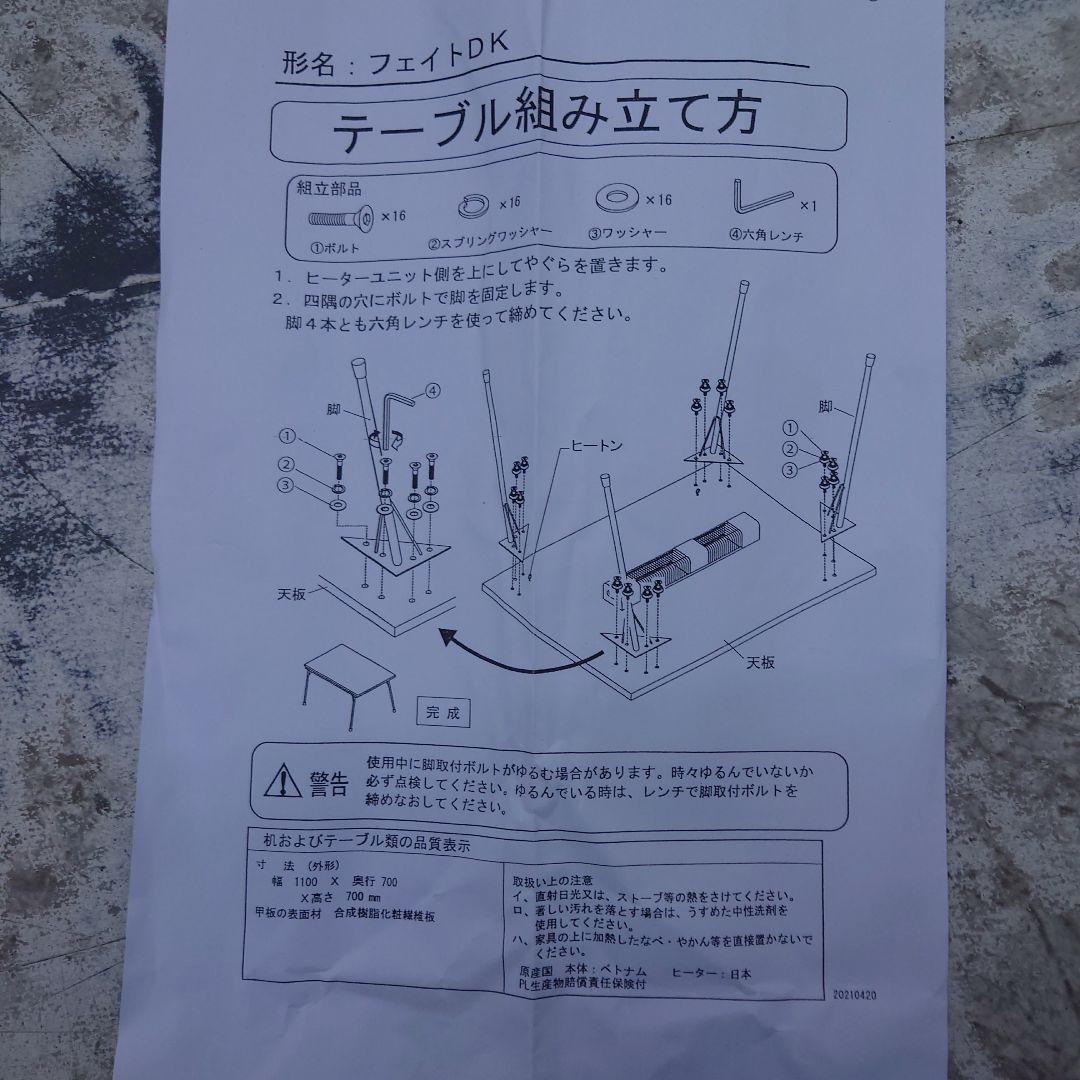 形名：フェイトDK
テーブル組み立て方
組立部品
×16
×16
×16
×1
①ボルト
②スプリングワッシャー
③ワッシャー
④六角レンチ
1．ヒーターユニット側を上にしてやぐらを置きます。
2．四隅の穴にボルトで脚を固定します。
脚4本とも六角レンチを使って締めてください。
④
脚
①
②
③
ヒートン
脚
①
②
③
天板
天板
完成
警告
使用中に脚取付ボルトがゆるむ場合があります。時々ゆるんでいないか
必ず点検してください。ゆるんでいる時は、レンチで脚取付ボルトを
締めなおしてください。
机およびテーブル類の品質表示
寸 法 (外形)
幅 1100 X 奥行 700
X高さ 700 mm
甲板の表面材 合成樹脂化粧繊維板
取扱い上の注意
イ、直射日光又は、ストーブ等の熱をさけてください。
ロ、著しい汚れを落とす場合は、うすめた中性洗剤を
使用してください。
ハ、家具の上に加熱したなべ・やかん等を直接置かないで
ください。
原産国 本体：ベトナム ヒーター：日本
PL生産物賠償責任保険付
20210420